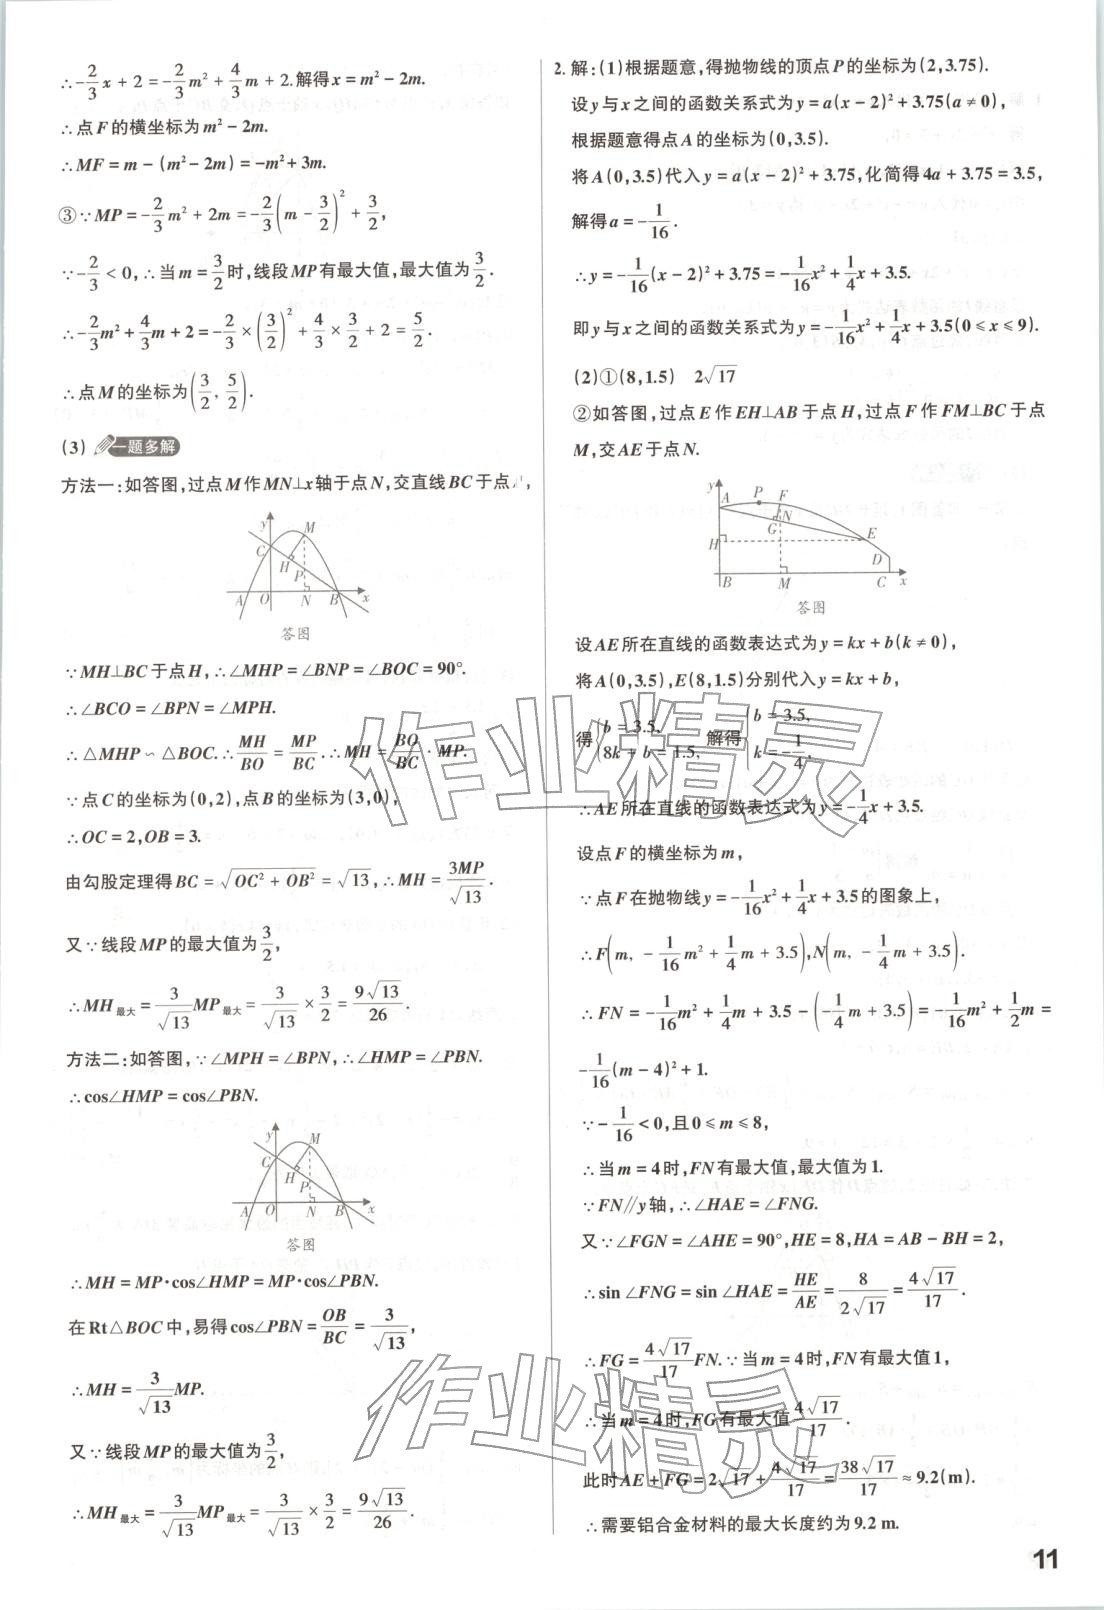 ∴-2/3x+2=-2/3m²+4/3m+2.解得x=m²-2m.
∴点F的横坐标为m²-2m.
∴MF=m-(m²-2m)=-m²+3m.
③∵MP=-2/3m²+2m=-2/3(m-3/2)²+3/2,
∵-2/3<0,∴当m=3/2时,线段MP有最大值,最大值为3/2.
∴-2/3m²+4/3m+2=-2/3×(3/2)²+4/3×3/2+2=5/2.
∴点M的坐标为(3/2,5/2).
(3)一题多解
方法一:如答图,过点M作MN⊥x轴于点N,交直线BC于点P,
y
M
C
H
P
A
O
N
B
x
答图
∵MH⊥BC于点H,∴∠MHP=∠BNP=∠BOC=90°.
∴∠BCO=∠BPN=∠MPH.
∴△MHP∽△BOC.∴MH/BO=MP/BC.∴MH=BO/BC·MP.
∵点C的坐标为(0,2),点B的坐标为(3,0),
∴OC=2,OB=3.
由勾股定理得BC=√(OC²+OB²)=√13,∴MH=3MP/√13.
又∵线段MP的最大值为3/2,
∴MH最大=3/√13MP最大=3/√13×3/2=9√13/26.
方法二:如答图,∵∠MPH=∠BPN,∴∠HMP=∠PBN.
∴cos∠HMP=cos∠PBN.
y
M
C
H
P
A
O
N
B
x
答图
∴MH=MP·cos∠HMP=MP·cos∠PBN.
在Rt△BOC中,易得cos∠PBN=OB/BC=3/√13,
∴MH=3/√13MP.
又∵线段MP的最大值为3/2,
∴MH最大=3/√13MP最大=3/√13×3/2=9√13/26.
2.解:(1)根据题意,得抛物线的顶点P的坐标为(2,3.75).
设y与x之间的函数关系式为y=a(x-2)²+3.75(a≠0),
根据题意得点A的坐标为(0,3.5).
将A(0,3.5)代入y=a(x-2)²+3.75,化简得4a+3.75=3.5,
解得a=-1/16.
∴y=-1/16(x-2)²+3.75=-1/16x²+1/4x+3.5.
即y与x之间的函数关系式为y=-1/16x²+1/4x+3.5(0≤x≤9).
(2)①(8,1.5) 2√17
②如答图,过点E作EH⊥AB于点H,过点F作FM⊥BC于点
M,交AE于点N.
y
P
F
A
N
G
E
H
D
B
M
C
x
答图
设AE所在直线的函数表达式为y=kx+b(k≠0),
将A(0,3.5),E(8,1.5)分别代入y=kx+b,
得{b=3.5, 8k+b=1.5, 解得{b=3.5, k=-1/4.
∴AE所在直线的函数表达式为y=-1/4x+3.5.
设点F的横坐标为m,
∵点F在抛物线y=-1/16x²+1/4x+3.5的图象上,
∴F(m,-1/16m²+1/4m+3.5),N(m,-1/4m+3.5).
∴FN=-1/16m²+1/4m+3.5-(-1/4m+3.5)=-1/16m²+1/2m=
-1/16(m-4)²+1.
∵-1/16<0,且0≤m≤8,
∴当m=4时,FN有最大值,最大值为1.
∵FN∥y轴,∴∠HAE=∠FNG.
又∵∠FGN=∠AHE=90°,HE=8,HA=AB-BH=2,
∴sin∠FNG=sin∠HAE=HE/AE=8/2√17=4√17/17.
∴FG=4√17/17FN.∵当m=4时,FN有最大值1,
∴当m=4时,FG有最大值4√17/17.
此时AE+FG=2√17+4√17/17=38√17/17≈9.2(m).
∴需要铝合金材料的最大长度约为9.2 m.
作业精灵
作业精灵
11